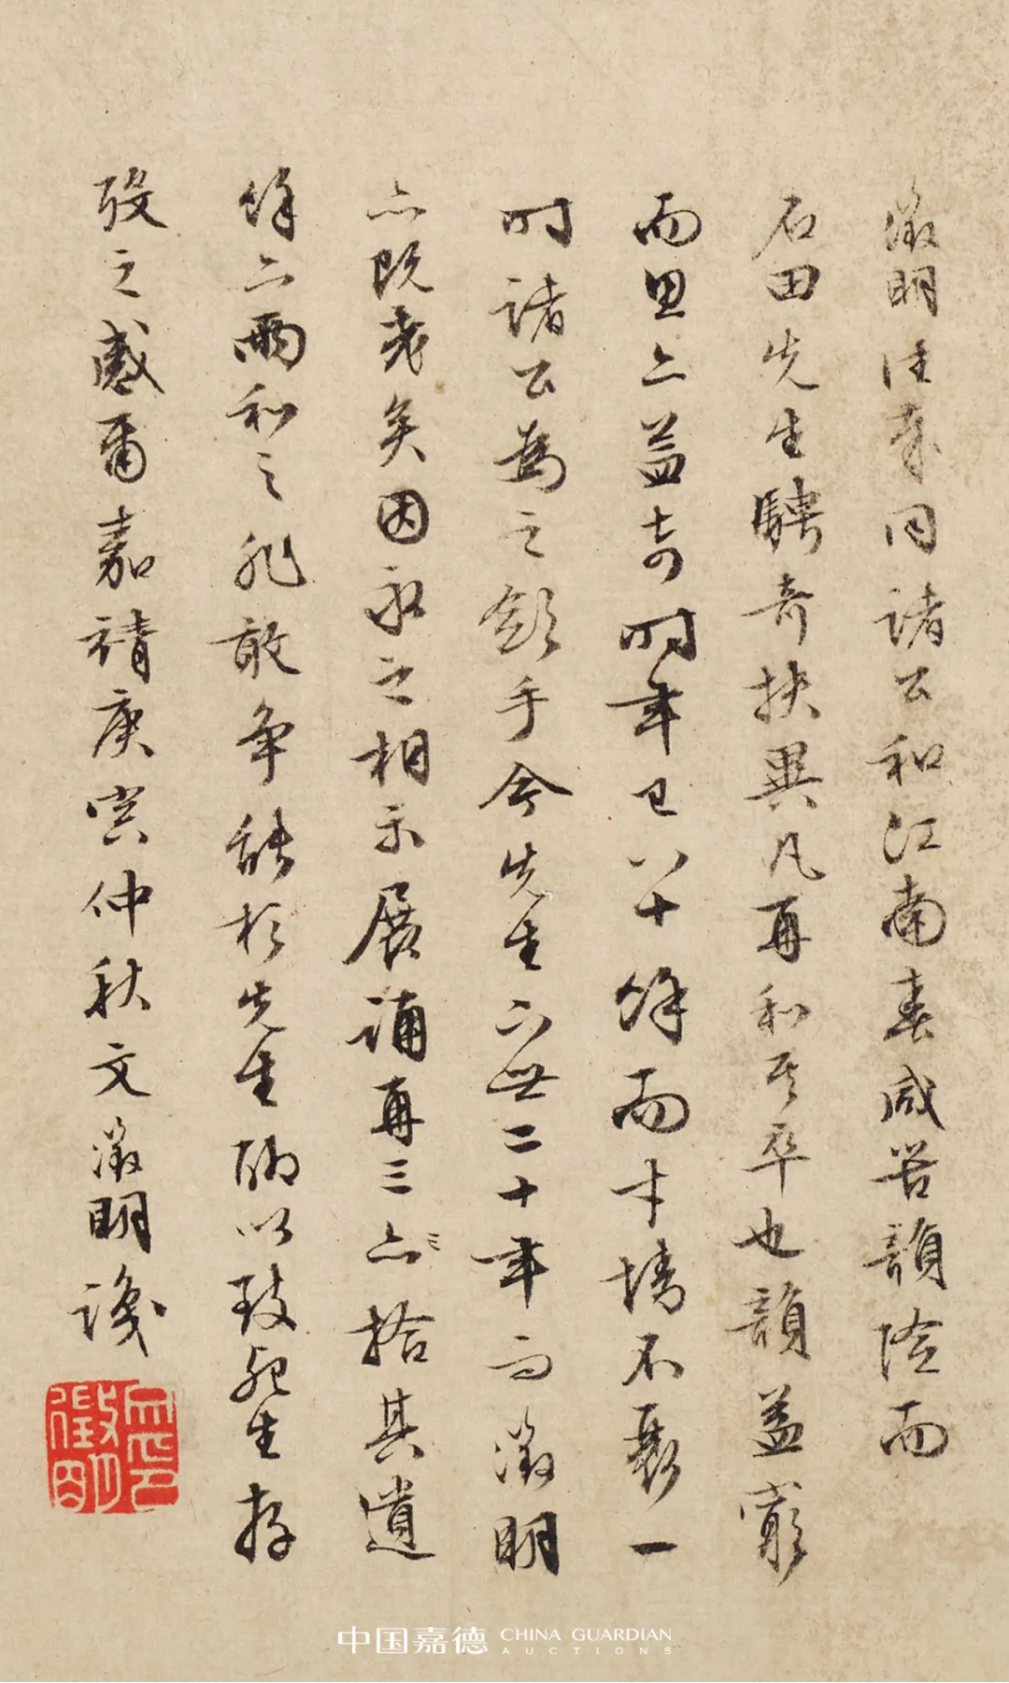 徵明往嵗同諸公和江南春咸苦韻險而
石田先生騁奇抉異凡再和其卒也韻益窮
而思亦益奇時年已八十餘而才情不衰一
時諸公爲之斂手今先生下世二十年而徵明
亦既老矣因永之相示展誦再三ミ亦拾其遺
餘亦兩和之非敢争能於先生聊以致死生存
殁之感爾嘉靖庚寅仲秋文徵明識
文徵明印
中国嘉德 CHINA GUARDIAN
AUCTIONS